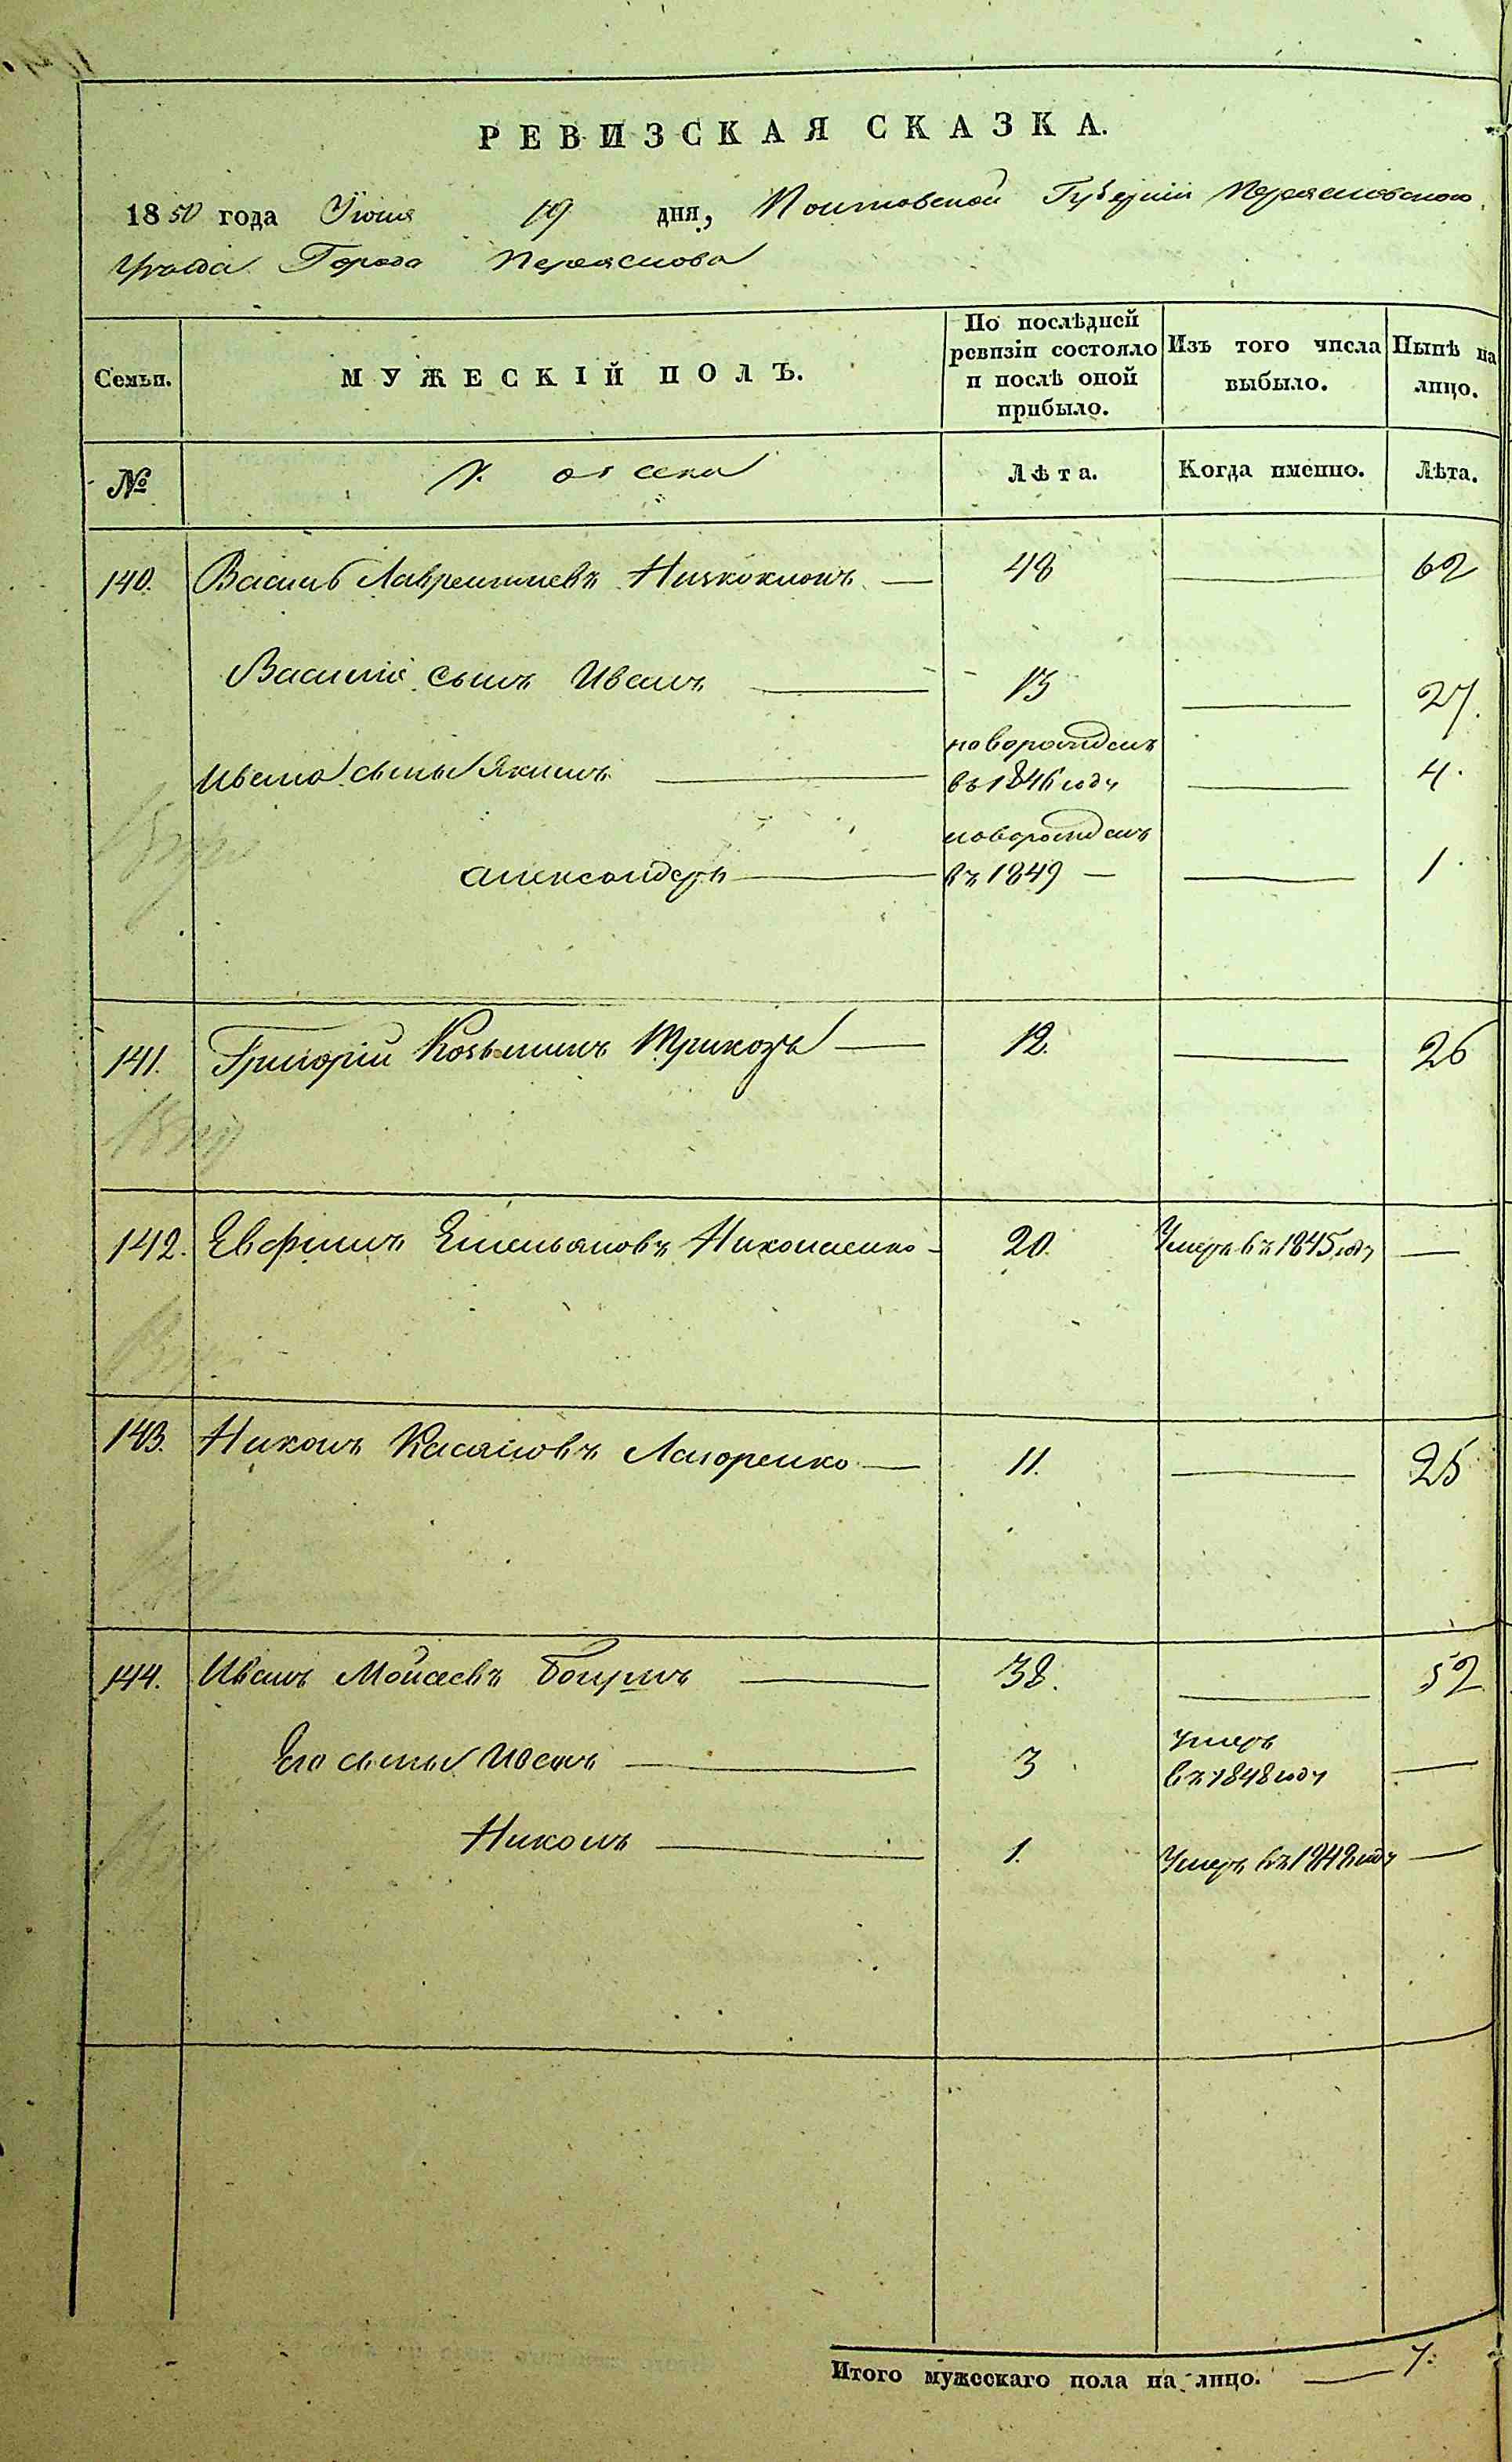 РЕВИЗСКАЯ СКАЗКА.
1850 года Июня 19 дня, Полтавской Губерніи Переяславского
Уезда Города Переяслова
Семьи. МУЖЕСКІЙ ПОЛЪ. По послѣдней ревизіи состояло и послѣ оной прибыло. Изъ того числа выбыло. Нынѣ на лицо.
№ Лѣта. Когда именно. Лѣта.
140. Василь Лаврентиевъ 48 — 62
Василія сынъ Иванъ — 13 — 27.
Ивана сыны Якимъ — новорожденъ въ 1846 году — 4.
Александеръ — новорожденъ въ 1849 — — 1
141. Григорій Козьминъ Трикозъ — 12. — 26
142. Евфимъ Емельяновъ Николаенко - 20. Умеръ въ 1845 году —
143. Никонъ Касяновъ Лазоренко — 11. — 25
144. Иванъ Мойсеевъ — 38. — 52
Его сыны Иванъ — 3 умеръ въ 1848 году —
Никонъ — 1. Умеръ въ 1848 году —
Итого мужескаго пола на лицо. — 7.